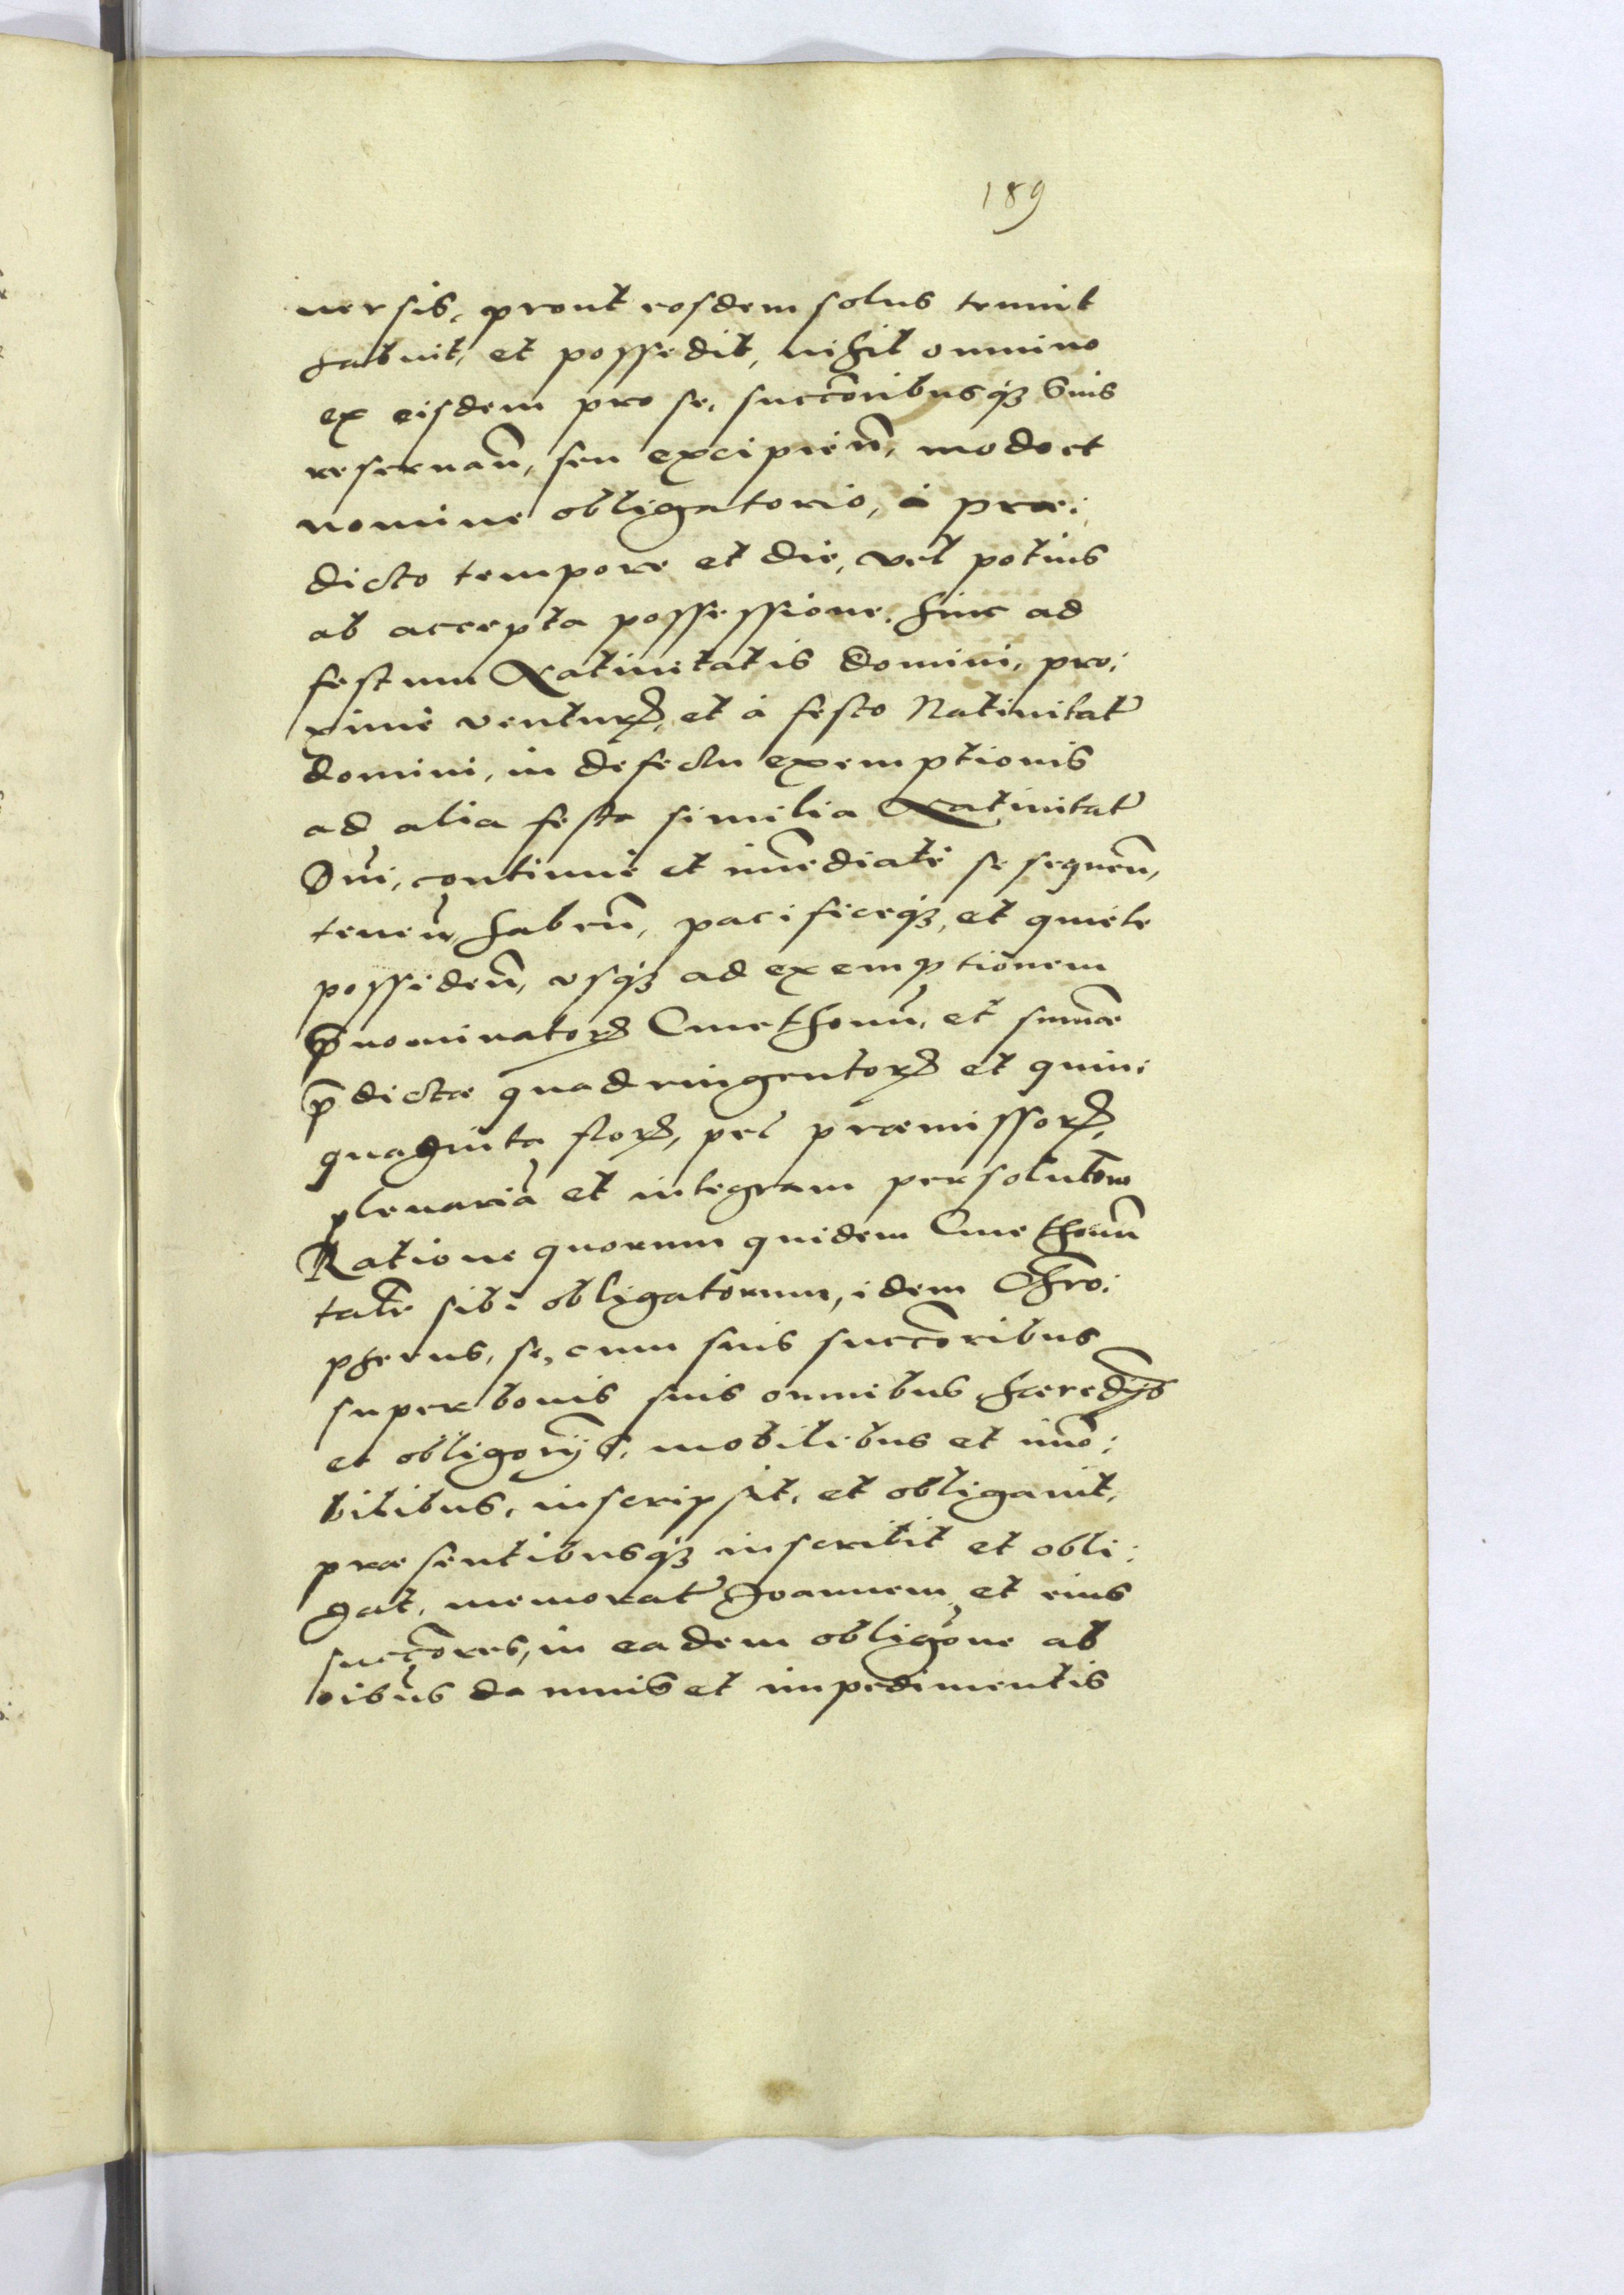 189
uersis, prout eosdem solus tenuit
habuit, et possedit, nihil omnino
ex eisdem pro se, succōribusqꝫ suis
reseruan̄, seu excipien̄, modo et
nomine obligatorio, à præ:
dicto tempore et die, vel potius
ab accepta possessione, hinc ad
festum Natiuitatis Domini, pro:
ximè venturꝝ, et à festo Natiuitat̄
domini, in defectu exemptionis
ad alia festa similia Natiuitat̄
Dn̄i, continuè et im̄ediatè se sequen̄,
tenen̄, haben̄, pacificeqꝫ, et quiete
possiden̄, vsqꝫ ad exemptionem
p̄nominatoꝝ Cmethonū, et sum̄æ
p̄dictæ quadringentoꝝ et quin:
quaginta floꝝ, pec præmissoꝝ,
plenariā et integram persolutōm
Ratione quorum quidem Cmethonū
talr̄ sibi obligatorum, idem Chro:
pherus, se, cum suis succōribus
super bonis suis omnibus hæredījs
et obligorījs, mobilibus et im̄o:
bilibus, inscripsit, et obligauit,
præsentibusqꝫ inscribit et obli:
gat, memorat̄ Joannem et eius
succōres, in eadem obligōne ab
oībus damnis et impedimentis